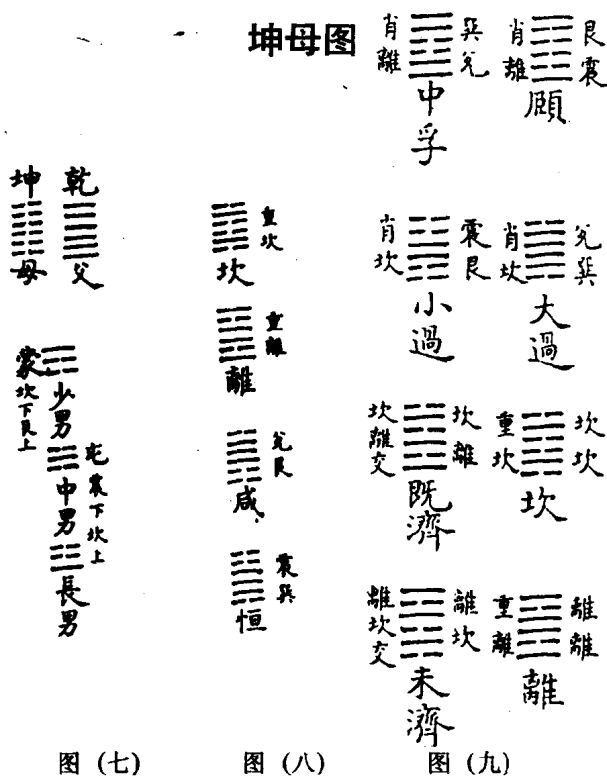 坤母图
坤
母
乾
父
蒙
坎下艮上
少男
中男
屯
震下坎上
長男
图（七）
重坎
坎
重離
離
兑艮
咸
震巽
恒
图（八）
肖離
巽兑
中孚
肖離
艮震
頤
肖坎
震艮
小過
肖坎
兑巽
大過
坎離交
坎離
既濟
重坎
坎坎
坎
離坎交
離坎
未濟
重離
離離
離
图（九）